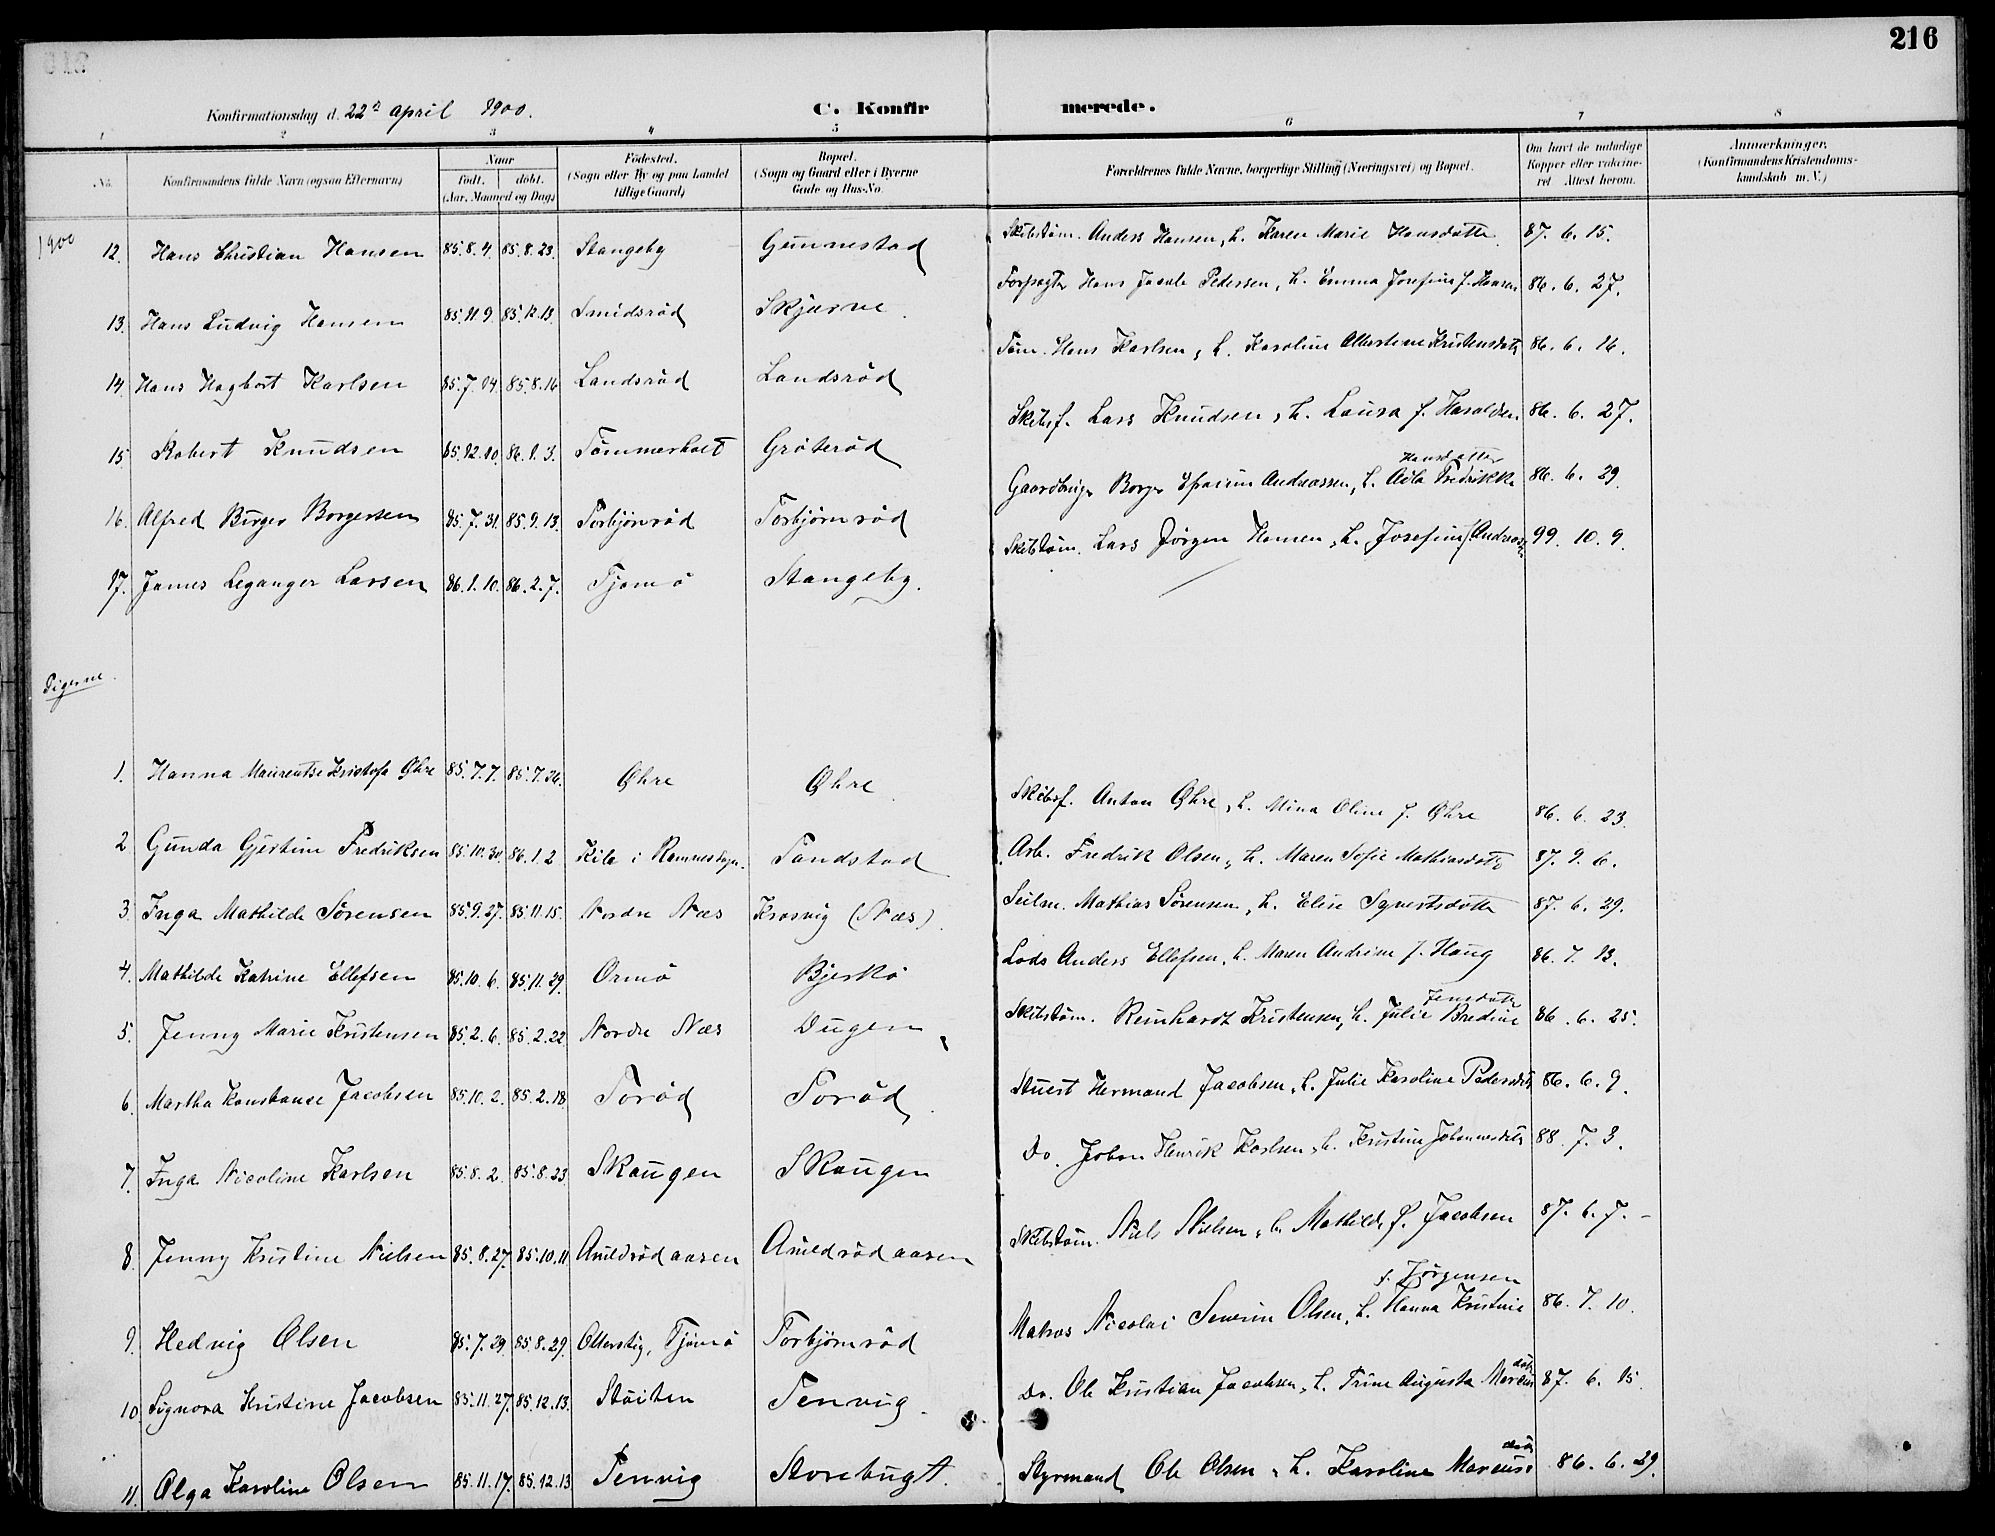 216
Konfirmationsdag d. 22de april 1900. C. Konfirmerede.
1 2 3 4 5 6 7 8
No. Konfirmandens fulde Navn (ogsaa Efternavn) Naar født. døbt. (Aar, Maaned og Dag) Fødested. (Sogn eller By og paa Landet tillige Gaard) Bopæl. (Sogn og Gaard eller i Byerne Gade og Hus-No. Forældrenes fulde Navne, borgerlige Stilling (Næringsvei) og Bopæl. Om havt de naturlige Kopper eller vaccineret Attest herom. Anmærkninger. (Konfirmandens Kristendomskundskab m. V.)
1900
12. Hans Christian Hansen 85.8.4. 85.8.23. Stangeby Gunnestad Skibstøm. Anders Hansen, h. Karen Marie Hansdatter 87. 6. 15.
13. Hans Ludvig Hansen 85.11.9. 85.12.13. Smidsrød Skjærve Forpagter Hans Jacob Pedersen, h. Emma Josefine f. Hansen 86. 6. 27.
14. Hans Hagbart Karlsen 85.7.14. 85.8.16 Landsrød Landsrød Tøm. Hans Karlsen, h. Karoline Albertine Kristensdatr 86. 6. 16.
15 Robert Knudsen 85.12.10. 86.1.3. Tømmerholt Grøterød Skibsf. Lars Knudsen, h. Laura f. Haraldsen 86. 6. 27.
16. Alfred Birger Borgersen 85.7.31. 85.9.13. Torbjørnrød Torbjørnrød Gaardbruger Borger Efraim Andreassen, h. Adla Fredrikke Hansdatter 86. 6. 29.
17. James Leganger Larsen 86.1.10. 86.2.7. Tjømø Stangeby. Skibstøm. Lars Jørgen Hansen, h. Josefine f. Andreas 99. 10. 9.
Pigerne.
1. Hanna Maurentse Kristofa Øhre 85.7.7. 85.7.26. Øhre Øhre Skibsf. Anton Øhre, h. Mina Oline f. Øhre 86. 6. 23.
2 Gunda Gjertine Fredriksen 85.10.30. 86.1.2 Kile i Ramnes sogn. Sandstad Arb. Fredrik Olsen, h. Maren Sofie Mathiasdatr 87. 9. 6.
3. Inga Mathilde Sørensen 85.9.27. 85.11.15. Nordre Næs Krosvig (Næs). Seilm. Mathias Sørensen, h. Elise Syvertsdatter 87. 6. 29.
4. Mathilde Katrine Ellefsen 85.10.6. 85.11.29. Ormø Bjerkø Lods Anders Ellefsen, h. Maren Andrine f. Haug 86. 7. 13.
5. Jenny Marie Kristensen 85.2.6. 85.2.22. Nordre Næs Dugen Skibstøm. Reinhardt Kristensen, h. Julie Bredine Jensdatr 86. 6. 25.
6. Martha Konstanse Jacobsen 85.10.2. 85.2.18. Torød Torød Stuert Hermand Jacobsen, h. Julie Karoline Pedersdatr 86. 6. 9.
7. Inga Nicoline Karlsen 85.8.2. 85.8.23. Skaugen Skaugen Do. Johan Henrik Karlsen, h. Kristine Johannesdatr 88. 7. 3.
8. Jenny Kristine Nielsen 85.8.27. 85.10.11. Anildrødaasen Anildrødaasen Skibstøm. Niels Nielsen, h. Mathilde f. Jacobsen 87. 6. 7. -
9. Hedvig Olsen 85.7.29. 85.8.29. Ollerstig, Tjømø Torbjørnrød Matros Nicolai Severin Olsen, h. Hanna Kristine f. Jørgensen 86. 7. 10.
10. Signora Kristine Jacobsen 85.11.27. 85.12.13. Støiten Tenvig. Do. Ole Kristian Jacobsen, h. Trine Augusta Marcusdatr 87. 6. 15.
11. Olga Karoline Olsen 85.11.17. 85.12.13 Tenvig Storebugt. Styrmand Ole Olsen, h. Karoline Marcusdatr 86. 6. 29.